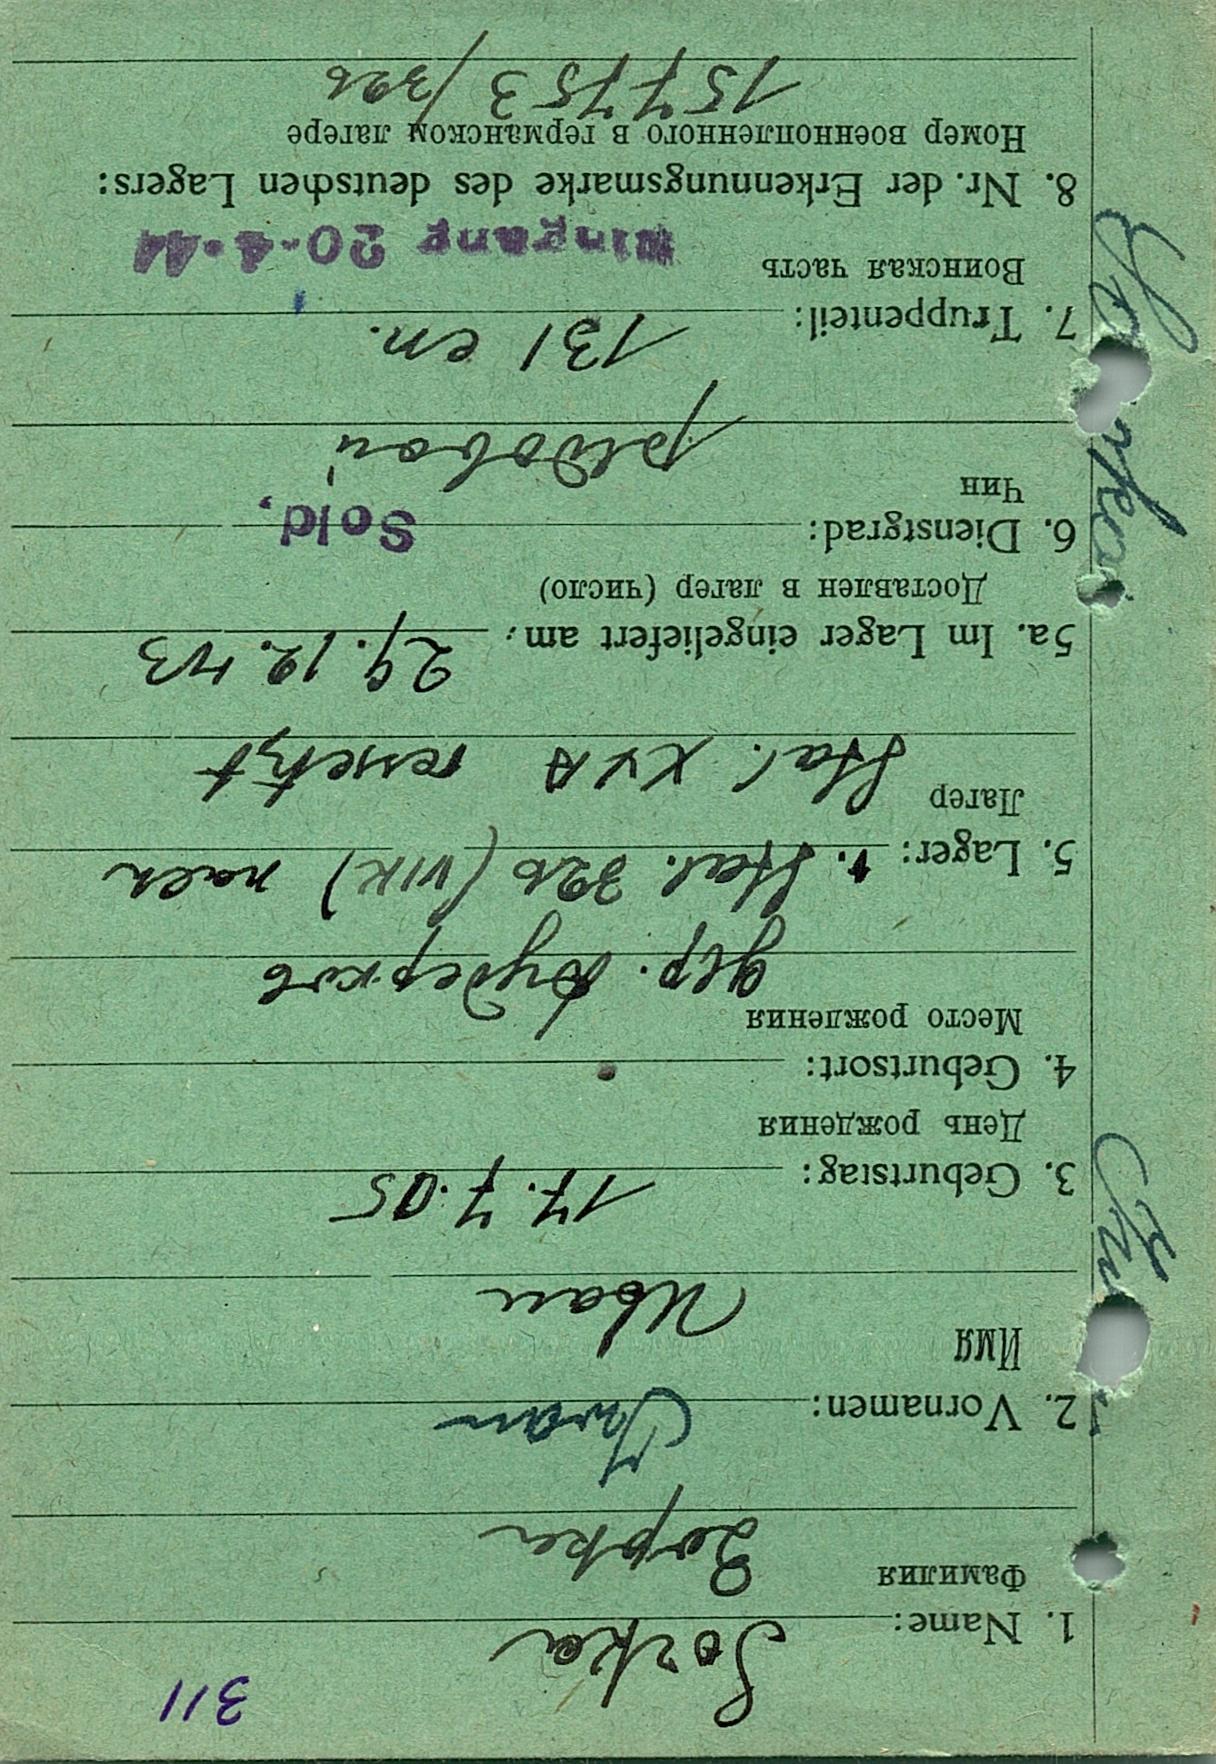 311
1. Name: Sorka
Фамилия Зорка
2. Vornamen: Iwan
Имя Иван
3. Geburtstag: 17.7.05
День рождения
4. Geburtsort:
Место рождения
дер.
5. Lager: v. Stal. 326 (VIK) nach
Лагер Stal. XVA versetzt
5a. Im Lager eingeliefert am: 29.12.43
Доставлен в лагер (число)
6. Dienstgrad: Sold.
Чин рядовой
7. Truppenteil: 131 сп.
Воинская часть
Eingang 20-4-44
8. Nr. der Erkennungsmarke des deutschen Lagers:
Номер военнопленного в германском лагере
157753/326